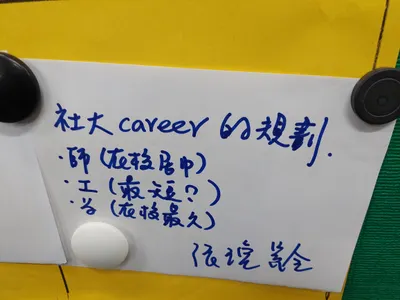 社大career的規劃.
·師(在校居中)
·工(最短?)
·学(在校最久)
張瑄